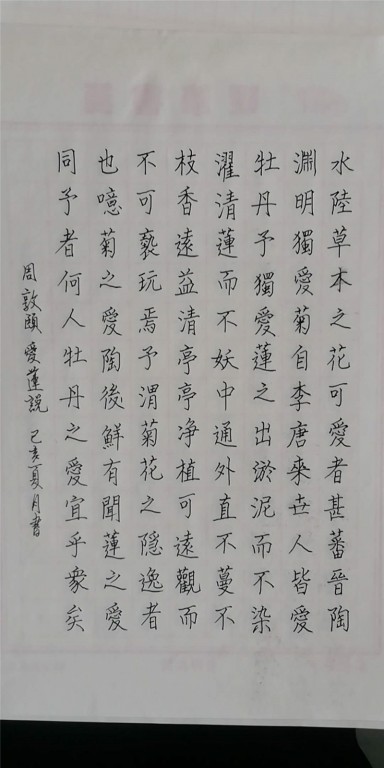 水陸草木之花可愛者甚蕃晉陶
淵明獨愛菊自李唐來世人皆愛
牡丹予獨愛蓮之出淤泥而不染
濯清蓮而不妖中通外直不蔓不
枝香遠益清亭亭净植可遠觀而
不可褻玩焉予渭菊花之隱逸者
也噫菊之愛陶後鮮有聞蓮之愛
同予者何人牡丹之愛宜乎衆矣
周敦頤愛蓮說 己亥夏月書